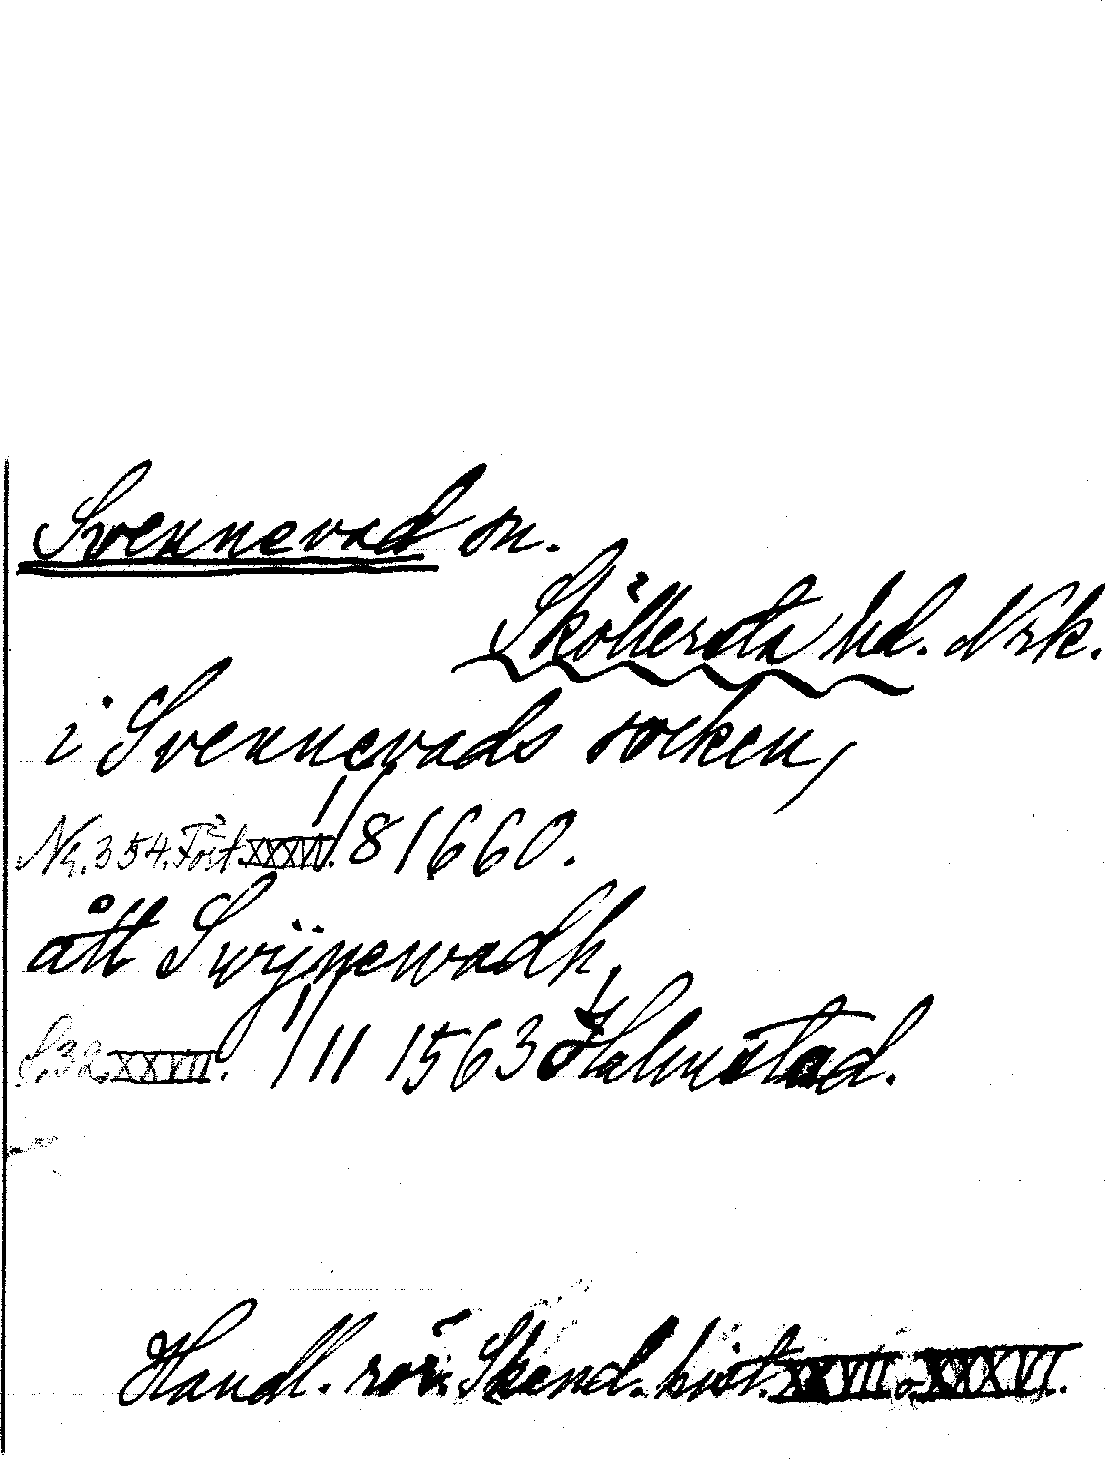 Svennevad sn.
Sköllersta hd. Nrk.
i Svennevads socken,
Nr. 354. Tört. XXXVI. 1/8 1660.
ått Swÿnewadh,
S. 32 XXVII. 1/11 1563 Halmstad.
Handl. rör. Skand. hist. XXVII o. XXXVI.